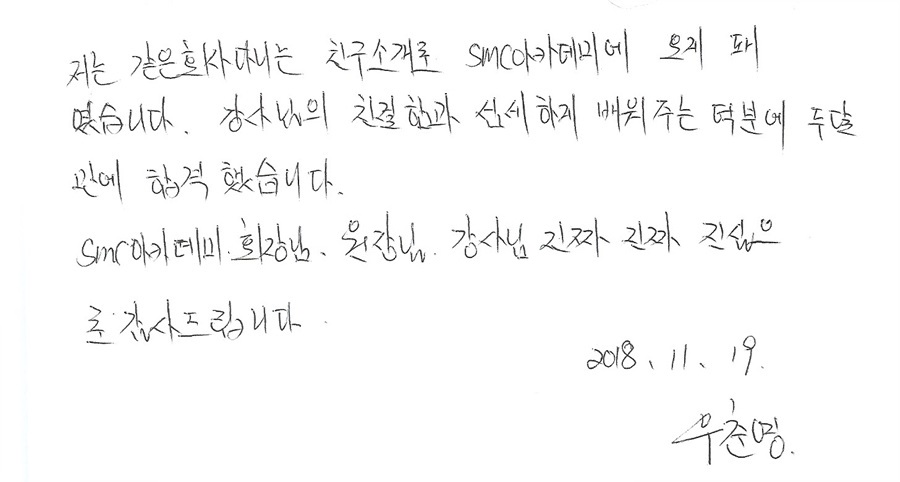 저는 같은회사다니는 친구소개로 SMC아카데미에 오게 돼
였습니다. 강사님의 친절함과 섬세하게 배워주는 덕분에 두달
만에 합격했습니다.
SMC아카데미. 회장님. 원장님. 강사님 진짜 진짜 진심으
로 감사드립니다.
2018. 11. 19.
우춘명.